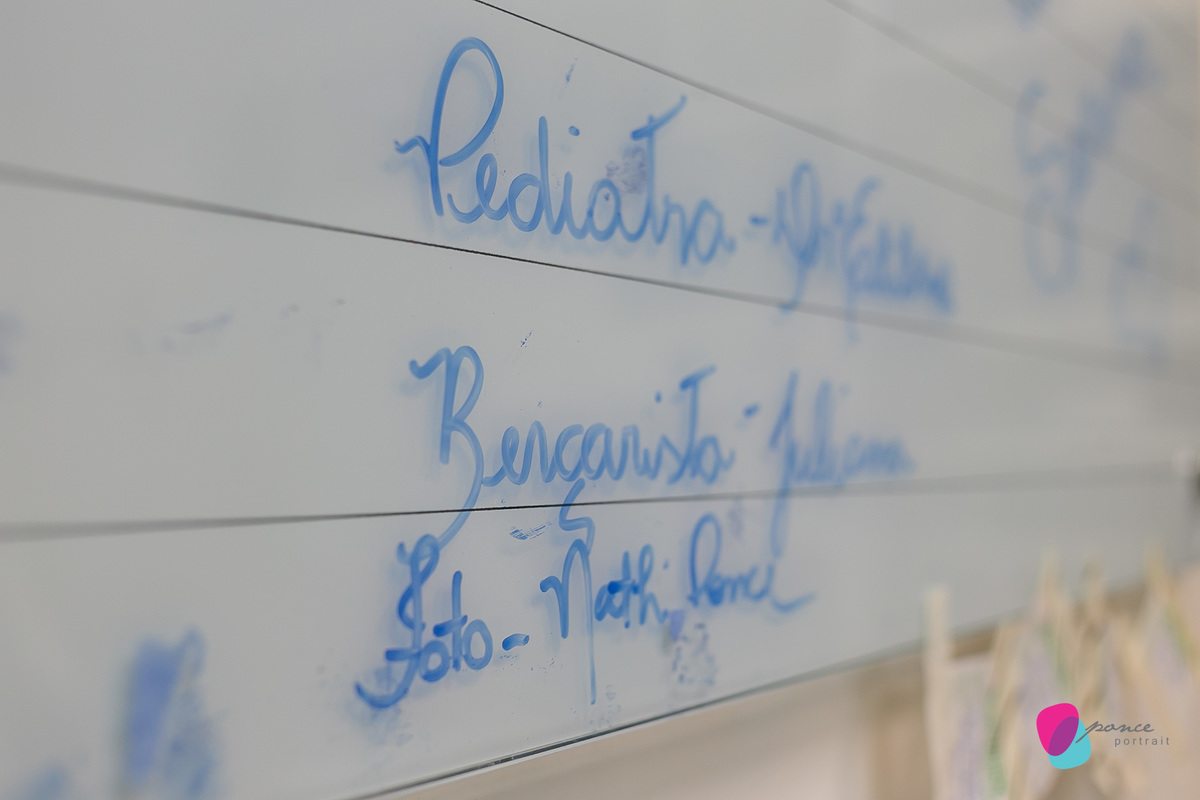 Pediatra -
Bercarista - Juliana
Foto - Nathi Ponce
ponce
portrait